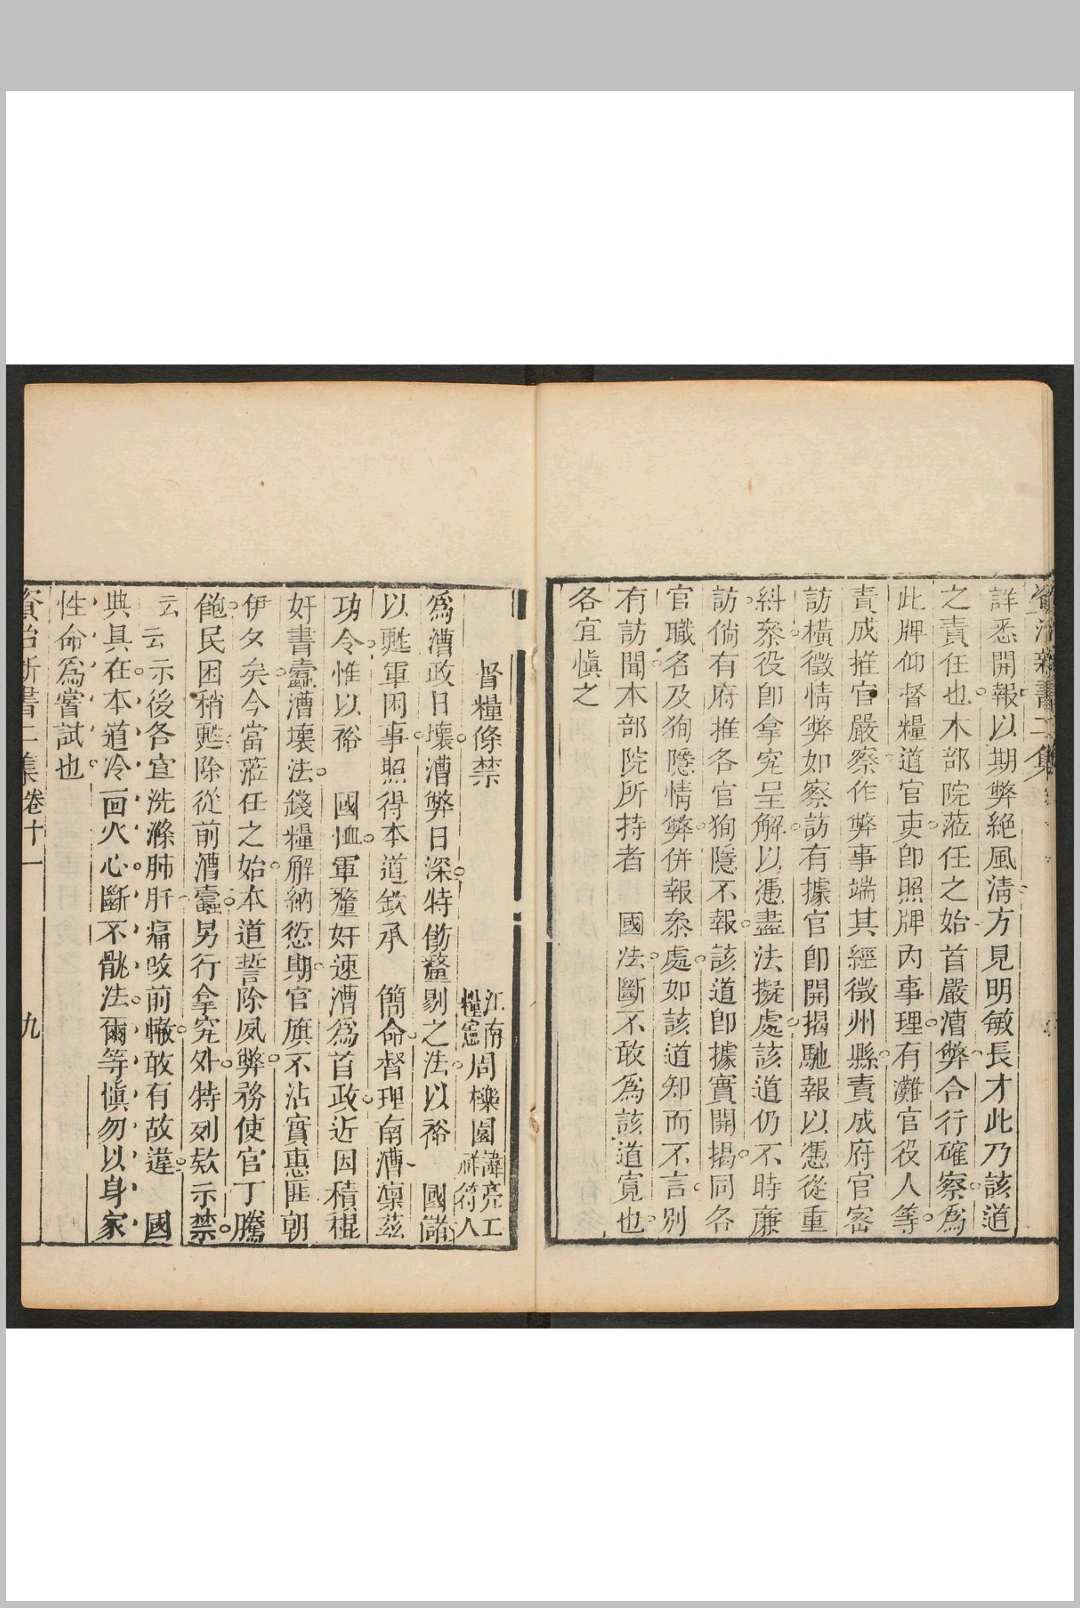 資治新書二集
詳悉開報以期弊絕風清方見明敏長才此乃該道
之責任也本部院蒞任之始首嚴漕弊合行確察爲
此牌仰督糧道官吏卽照牌內事理有灘官役人等
責成推官嚴察作弊事端其經徵州縣責成府官密
訪橫徵情弊如察訪有據官卽開揭馳報以憑從重
糾叅役卽拿究呈解以憑盡法擬處該道仍不時廉
訪倘有府推各官狥隱不報該道卽據實開揭同各
官職名及狥隱情弊併報叅處如該道知而不言別
有訪聞本部院所持者 國法斷不敢爲該道寬也
各宜愼之
督糧條禁 江南糧憲周櫟園諱亮工祥符人
爲漕政日壞漕弊日深特倣釐剔之法以裕 國儲
以甦軍困事照得本道欽承 簡命督理南漕凜茲
功令惟以裕 國恤軍釐奸速漕爲首政近因積棍
奸書蠹漕壞法錢糧解納愆期官旗不沾實惠匪朝
伊夕矣今當蒞任之始本道誓除夙弊務使官丁騰
飽民困稍甦除從前漕蠹另行拿究外特列欵示禁
云云示後各宜洗滌肺肝痛改前轍敢有故違 國
典具在本道冷面火心斷不骩法爾等愼勿以身家
性命爲嘗試也
資治新書二集 卷十一 九